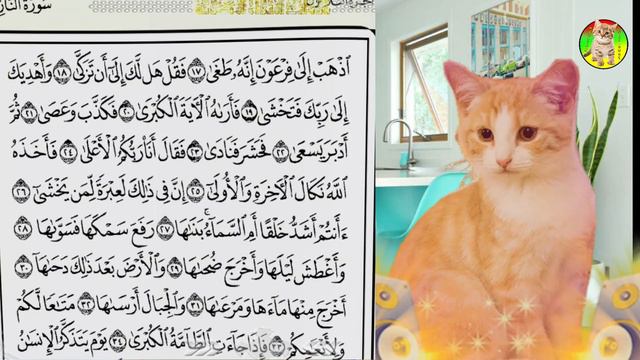 سورة الناز
اذْهَبْ إِلَىٰ فِرْعَوْنَ إِنَّهُ طَغَىٰ ١٧ فَقُلْ هَل لَّكَ إِلَىٰ أَن تَزَكَّىٰ ١٨ وَأَهْدِيَكَ
إِلَىٰ رَبِّكَ فَتَخْشَىٰ ١٩ فَأَرَاهُ الْآيَةَ الْكُبْرَىٰ ٢٠ فَكَذَّبَ وَعَصَىٰ ٢١ ثُمَّ
أَدْبَرَ يَسْعَىٰ ٢٢ فَحَشَرَ فَنَادَىٰ ٢٣ فَقَالَ أَنَا رَبُّكُمُ الْأَعْلَىٰ ٢٤ فَأَخَذَهُ
اللَّهُ نَكَالَ الْآخِرَةِ وَالْأُولَىٰ ٢٥ إِنَّ فِي ذَٰلِكَ لَعِبْرَةً لِّمَن يَخْشَىٰ ٢٦
ءَأَنتُمْ أَشَدُّ خَلْقًا أَمِ السَّمَاءُ بَنَاهَا ٢٧ رَفَعَ سَمْكَهَا فَسَوَّاهَا ٢٨
وَأَغْطَشَ لَيْلَهَا وَأَخْرَجَ ضُحَاهَا ٢٩ وَالْأَرْضَ بَعْدَ ذَٰلِكَ دَحَاهَا ٣٠
أَخْرَجَ مِنْهَا مَاءَهَا وَمَرْعَاهَا ٣١ وَالْجِبَالَ أَرْسَاهَا ٣٢ مَتَاعًا لَّكُمْ
وَلِأَنْعَامِكُمْ ٣٣ فَإِذَا جَاءَتِ الطَّامَّةُ الْكُبْرَىٰ ٣٤ يَوْمَ يَتَذَكَّرُ الْإِنسَانُ